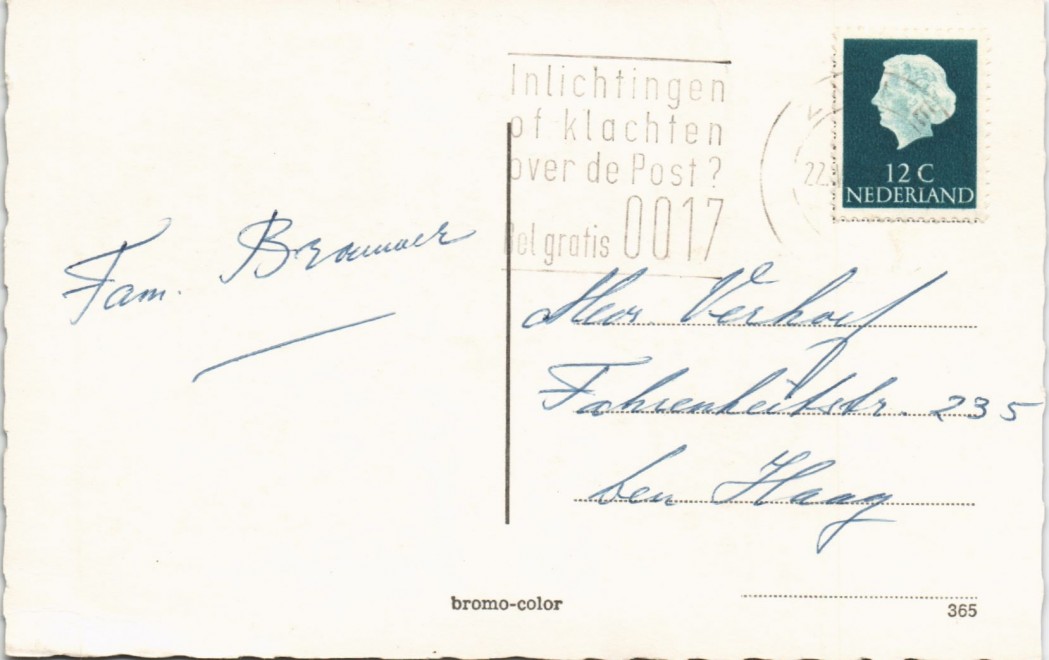 Inlichtingen
of klachten
over de Post?
Bel gratis 0017
22.
12 C
NEDERLAND
Fam.
Verhoef
Fahrenheitstr. 235
den Haag
bromo-color
365